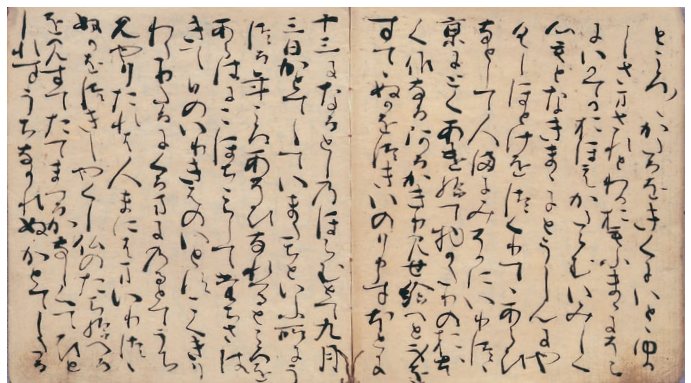 ところ〳〵かたるをきくにいとゝゆか
しさまされとわかおもふまゝにそら
にいかてかおほえかたらむいみしく
心もとなきまゝにとうしんにや
くしほとけをつくりててあらひ
なとして人まにみそかにいりつゝ
京にとくあけ給て物かたりのおほ
く候なるあるかきり見せ給へと身を
すてゝぬかをつきいのり申すほとに
十三になるとしのほらむとて九月
三日かとてしていまたちといふ所にう
つる年ころあそひなれつるところを
あらはにこほちゝらしてたちさは
きて日のいりきはのいとすこくきり
わたりたるにくるまにのるとてうち
見やりたれは人まにはまいりつゝ
ぬかをつきしやくし仏のたち給へる
を見すてたてまつるかなしくてひと
しれすうちなかれぬかとてしたる